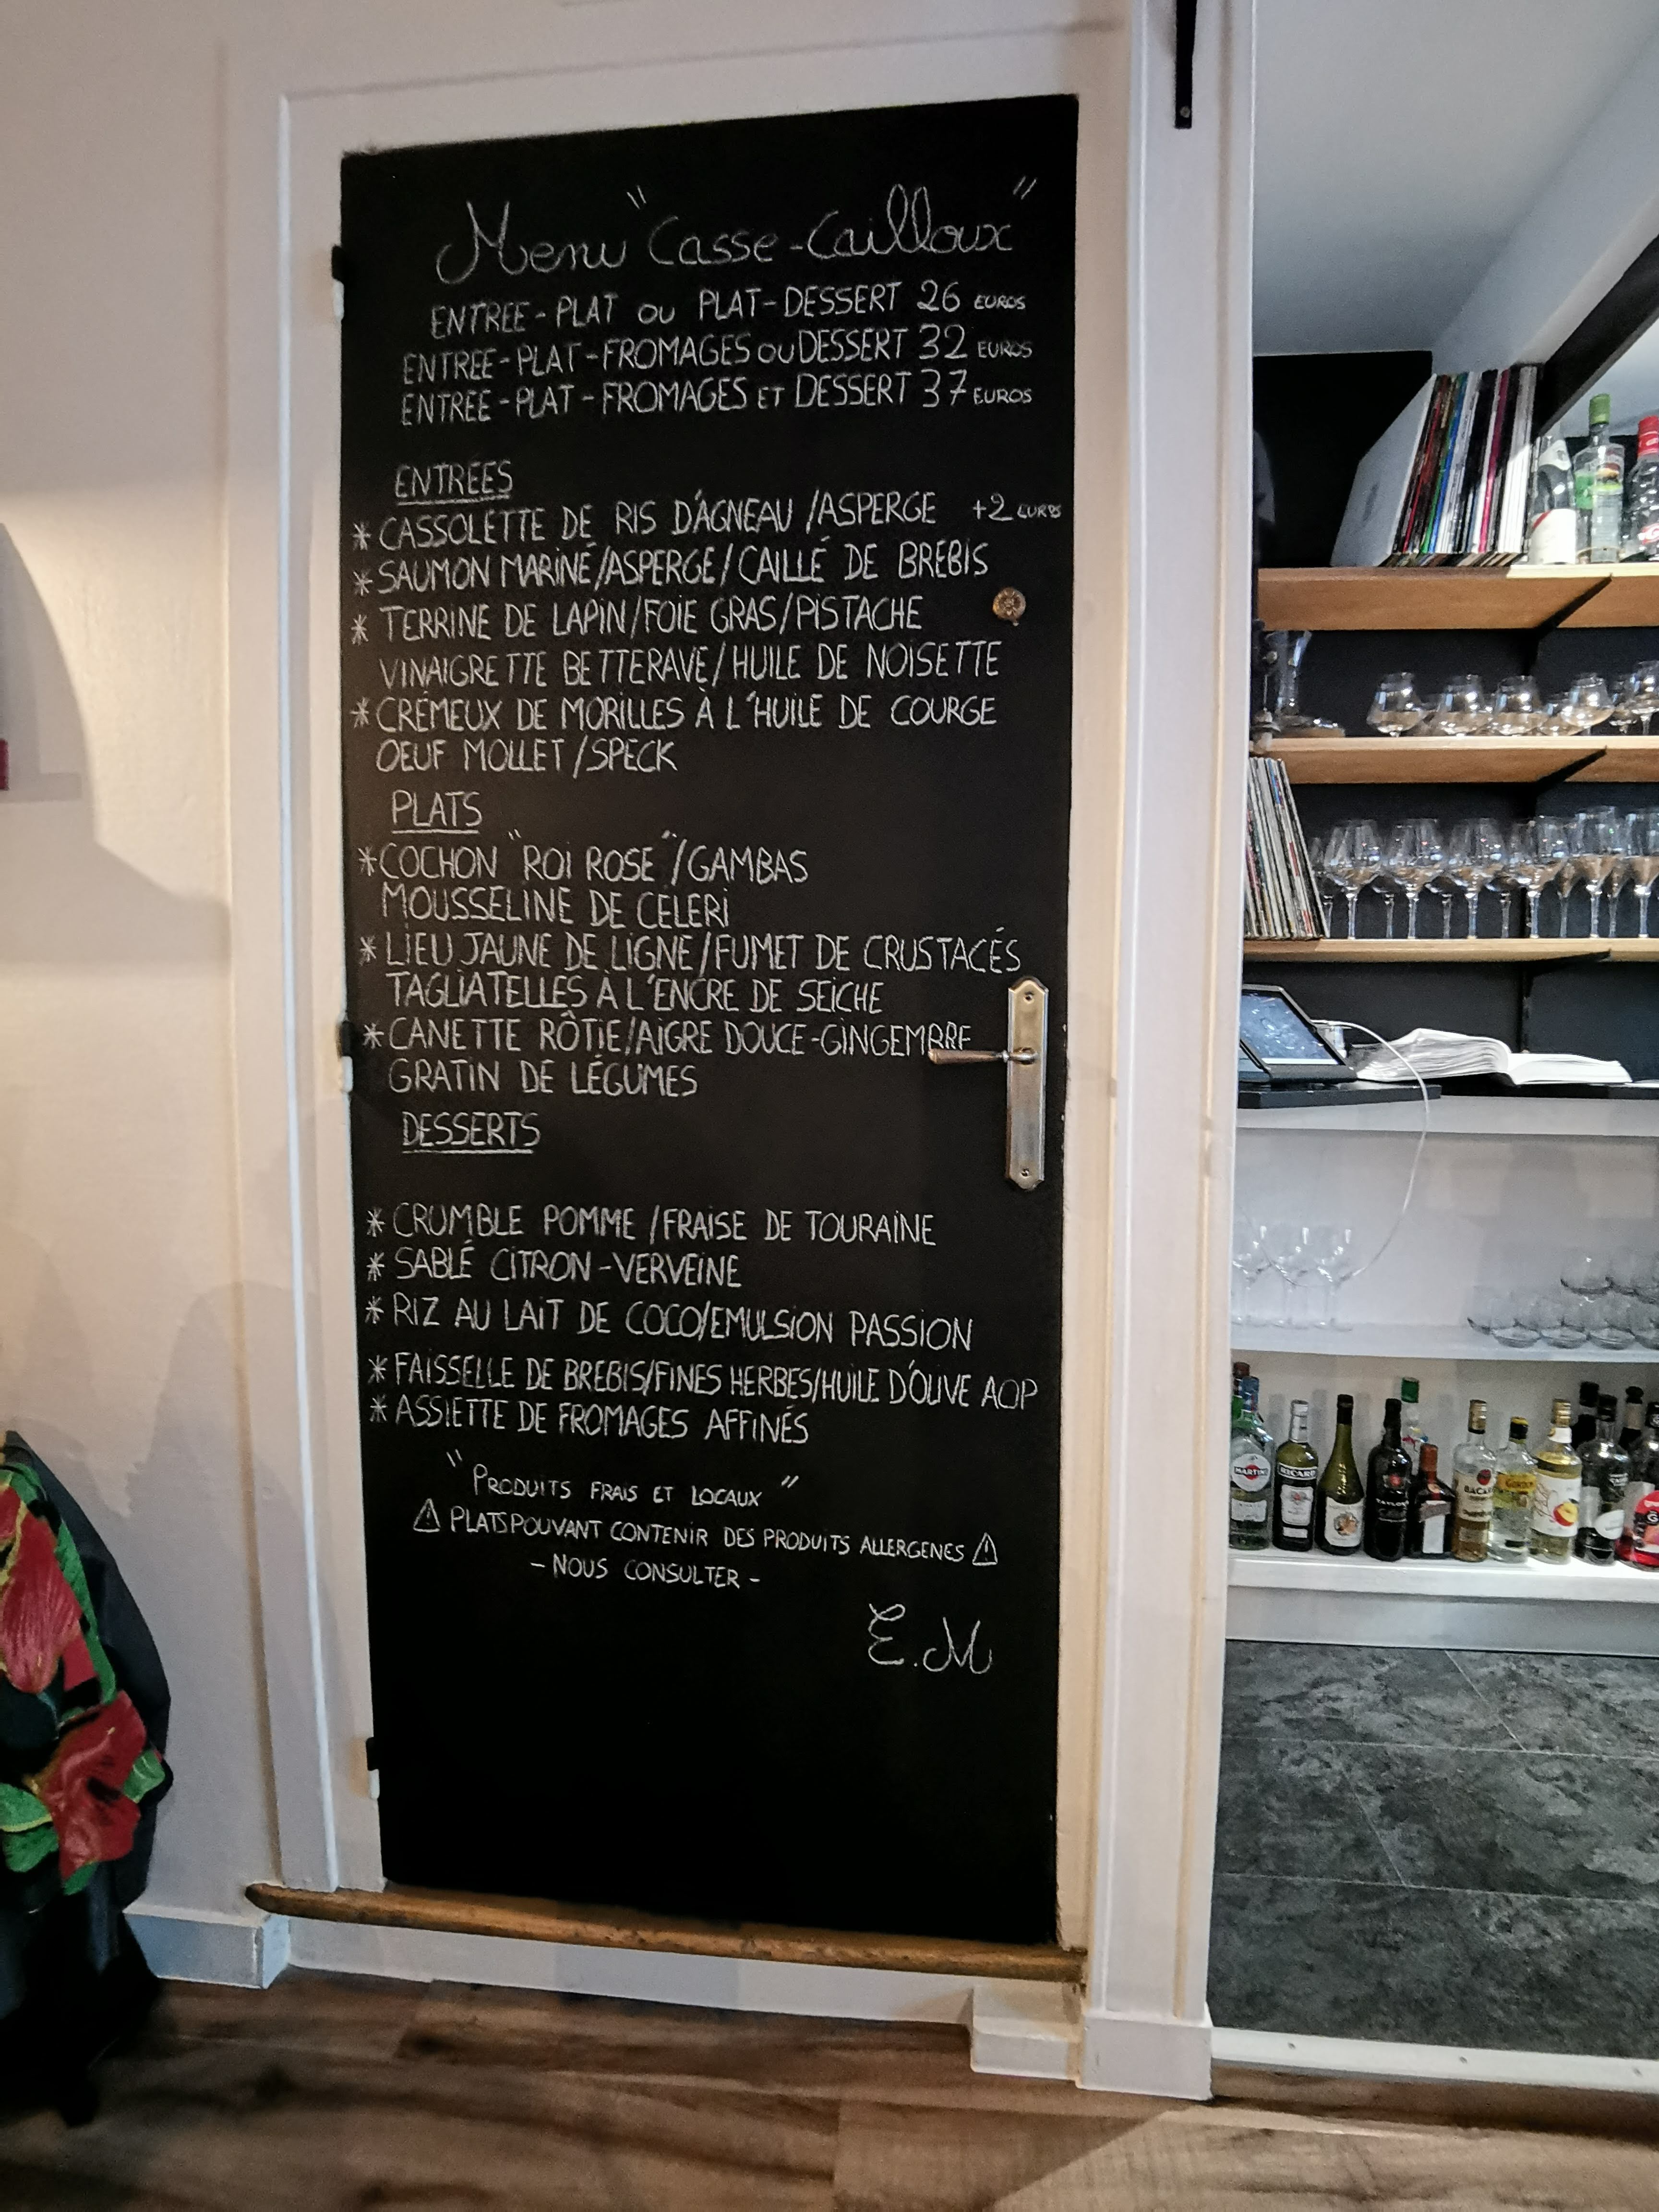 Menu "Casse-Cailloux"
ENTREE-PLAT OU PLAT-DESSERT 26 EUROS
ENTREE-PLAT-FROMAGES OU DESSERT 32 EUROS
ENTREE-PLAT-FROMAGES ET DESSERT 37 EUROS
ENTRÉES
* CASSOLETTE DE RIS D'AGNEAU /ASPERGE +2 EUROS
* SAUMON MARINÉ/ASPERGE/CAILLÉ DE BREBIS
* TERRINE DE LAPIN/FOIE GRAS/PISTACHE
VINAIGRETTE BETTERAVE/HUILE DE NOISETTE
* CRÉMEUX DE MORILLES À L'HUILE DE COURGE
OEUF MOLLET/SPECK
PLATS
* COCHON "ROI ROSE"/GAMBAS
MOUSSELINE DE CELERI
* LIEU JAUNE DE LIGNE/FUMET DE CRUSTACÉS
TAGLIATELLES À L'ENCRE DE SEICHE
* CANETTE RÔTIE/AIGRE DOUCE-GINGEMBRE
GRATIN DE LÉGUMES
DESSERTS
* CRUMBLE POMME /FRAISE DE TOURAINE
* SABLÉ CITRON-VERVEINE
* RIZ AU LAIT DE COCO/EMULSION PASSION
* FAISSELLE DE BREBIS/FINES HERBES/HUILE D'OLIVE AOP
* ASSIETTE DE FROMAGES AFFINÉS
"PRODUITS FRAIS ET LOCAUX"
⚠ PLATS POUVANT CONTENIR DES PRODUITS ALLERGENES ⚠
- NOUS CONSULTER -
E.M
MARTINI
RICARD